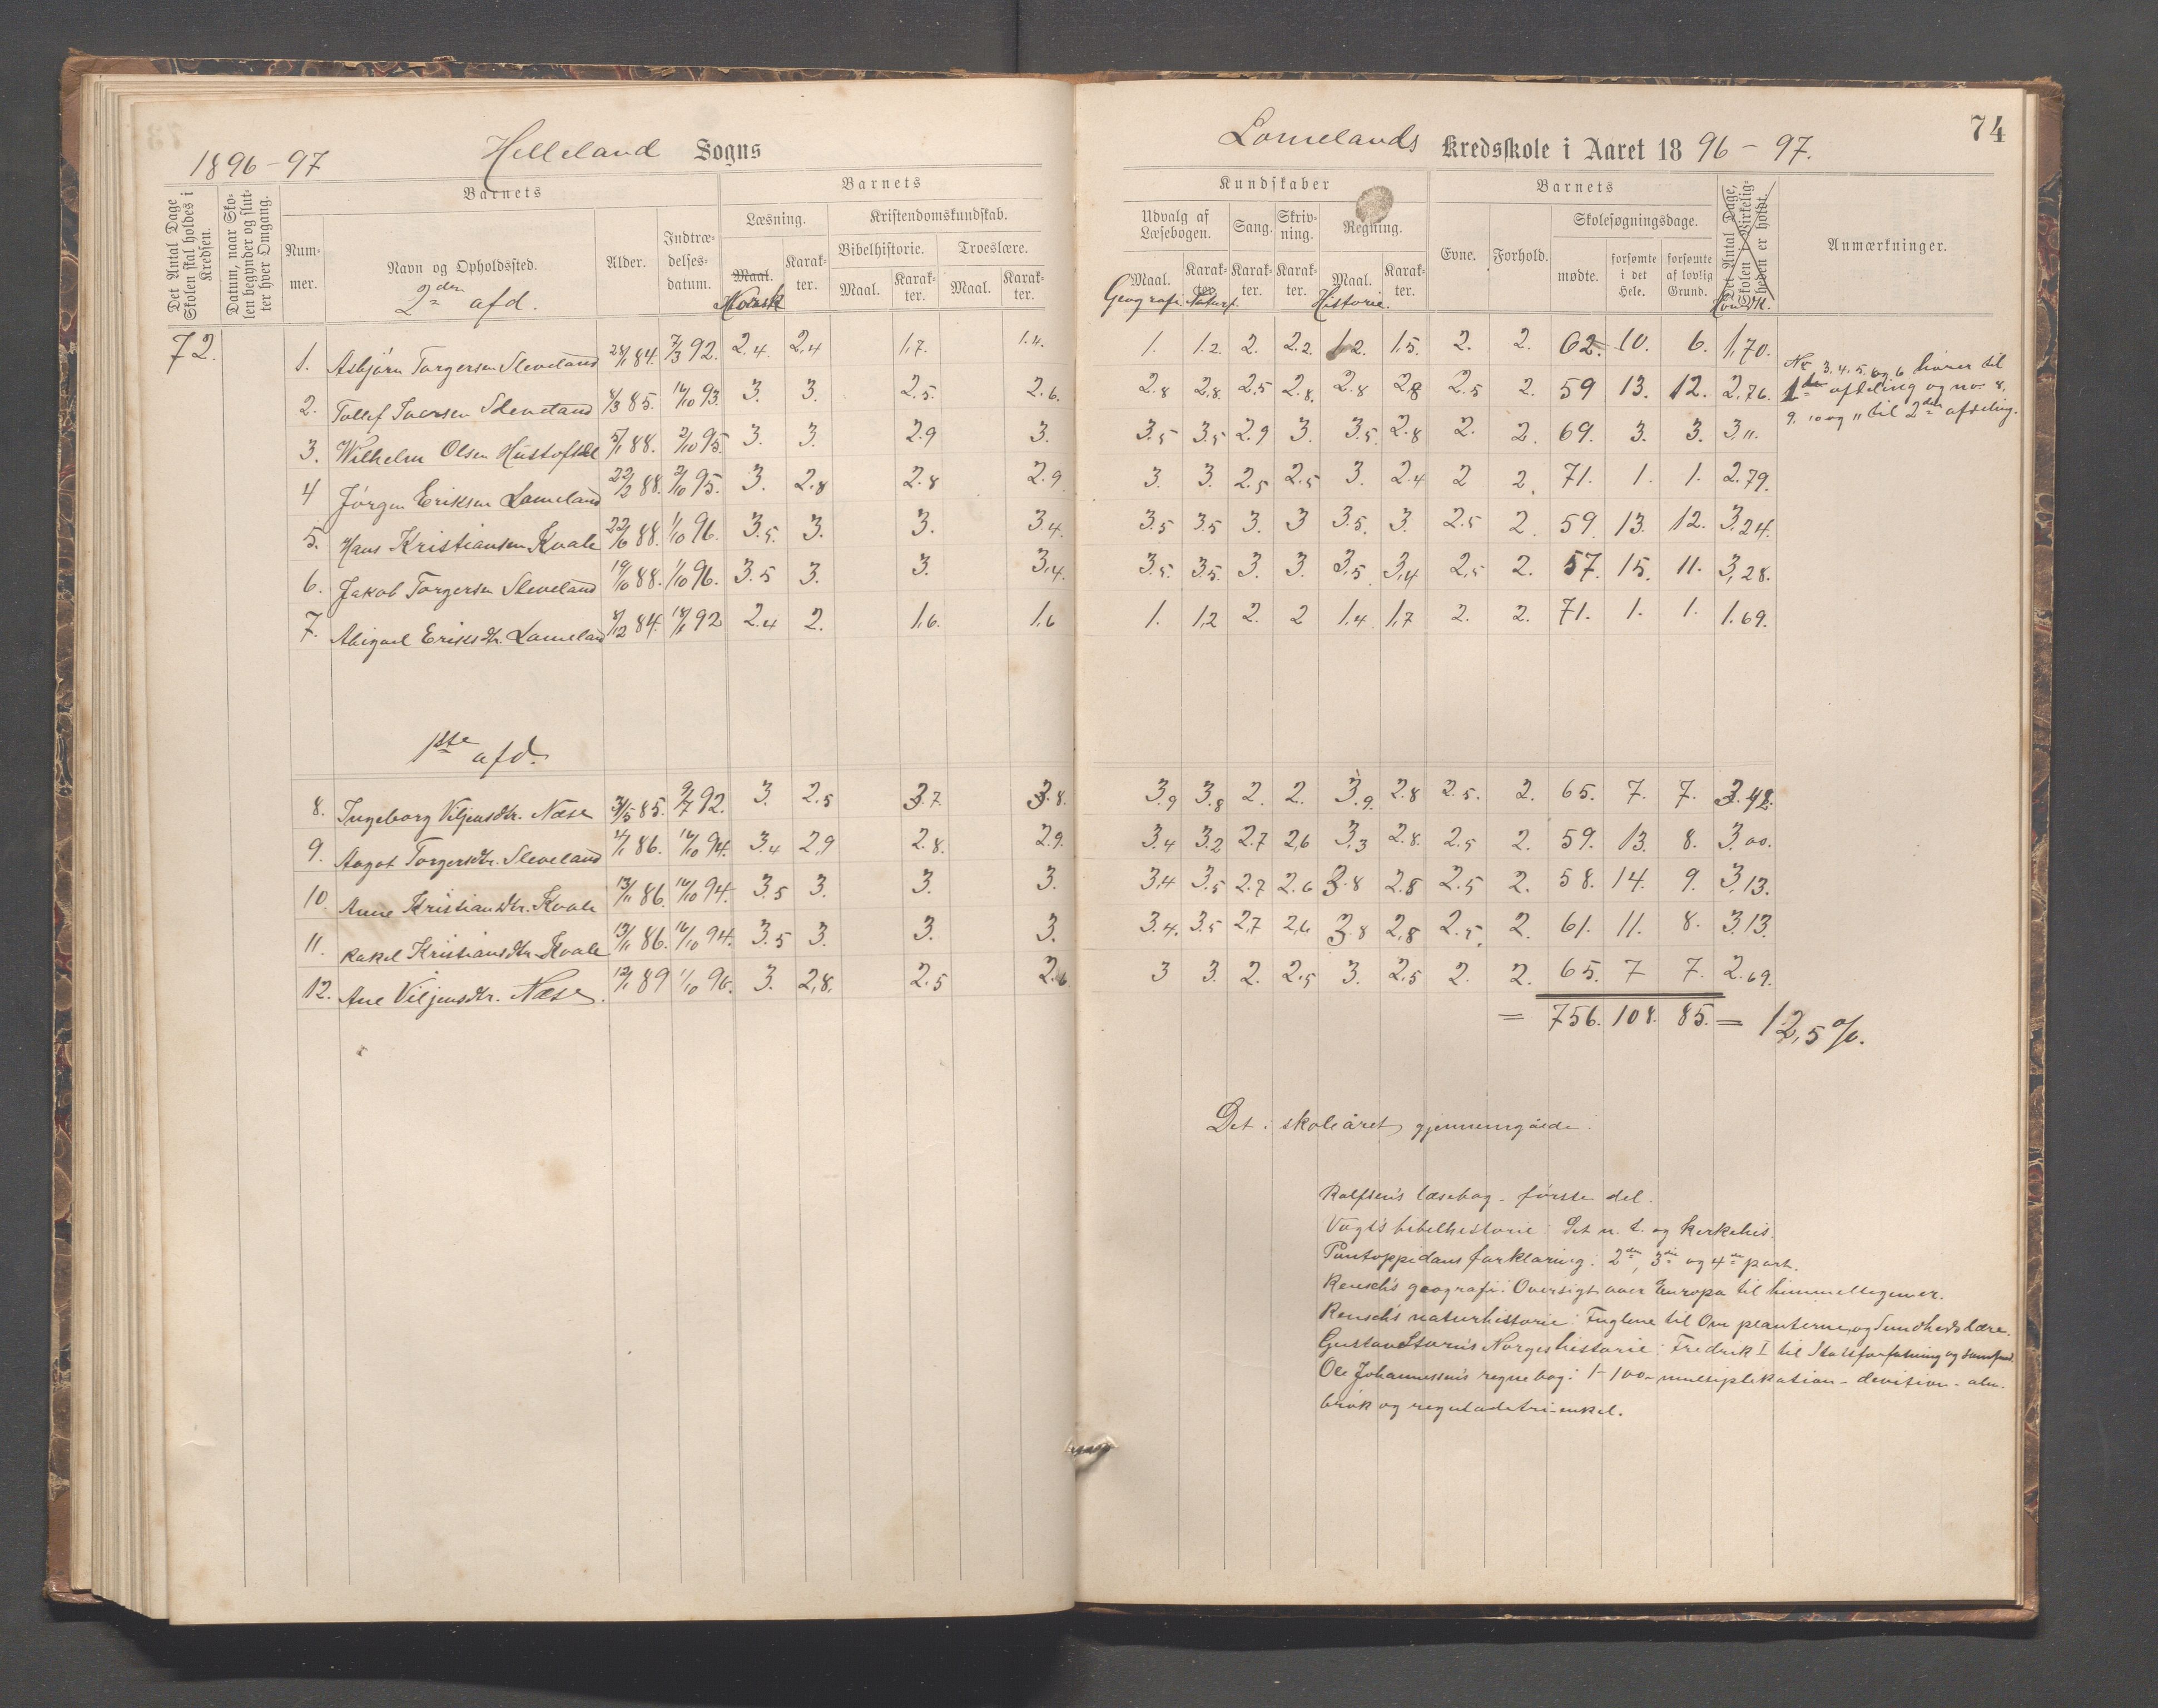 1896-97 Helleland Sogns
Lomelands Kredsskole i Aaret 1896-97. 74
Det Antal Dage Skolen skal holdes i Kredsen.
Datum, naar Skolen begynder og slutter hver Omgang.
Barnets
Barnets
Kundskaber
Barnets
Det Antal Dage, Skolen i Virkeligheden er holdt.
Anmærkninger.
Nummer.
Navn og Opholdssted.
Alder.
Indtrædelsesdatum.
Læsning.
Kristendomskundskab.
Udvalg af Læsebogen.
Sang.
Skrivning.
Regning.
Evne.
Forhold.
Skolesøgningsdage.
Bibelhistorie.
Troeslære.
mødte.
forsømte i det Hele.
forsømte af lovlig Grund.
Maal. Karakter. Maal. Karakter. Maal. Karakter. Maal. Karakter. Karakter. Karakter. Maal. Karakter.
2den afd. Norsk Geografi. Naturh. Historie.
72. 1. Asbjørn Torgersen Sleveland 28/1 84. 7/3 92. 2.4. 2,4 1,7. 1.4. 1. 1.2. 2. 2.2. 1.2. 1,5. 2. 2. 62. 10. 6. 1,70.
2. Tollef Iversen Sleveland 4/3 85. 16/10 93. 3. 3. 2.5. 2.6. 2.8 2,8. 2,5 2.8. 2.8 2.8 2.5 2. 59 13. 12. 2,76.
3. Wilhelm Olsen Hustoft 5/1 88. 2/10 95. 3. 3. 2.9 3. 3.5 3.5 2.9 3. 3.5 2.8 2. 2. 69. 3. 3. 3,11.
4 Jørgen Eriksen Lomeland 22/2 88. 2/10 95. 3. 2.8 2.8 2.9 3. 3. 2.5 2.5 3. 2.4 2 2. 71. 1. 1. 2.79.
5. Hans Kristiansen Kvale 22/6 88. 1/10 96. 3.5. 3. 3. 3.4. 3.5 3.5 3. 3 3.5. 3. 2.5 2. 59. 13. 12. 3.24.
6. Jakob Torgersen Sleveland 19/10 88. 1/10 96. 3.5 3. 3. 3,4. 3.5. 3.5. 3. 3. 3,5. 3,4 2,5 2. 57. 15. 11. 3,28.
7. Abigael Eriksdtr. Lomeland 8/12 84. 18/1 92 2.4 2. 1,6. 1,6 1. 1,2 2. 2 1.4. 1,7 2. 2. 71. 1. 1. 1.69.
No 3. 4. 5. og 6 hører til
1ste afdeling og no. 8,
9, 10 og 11 til 2den afdeling.
1ste afd.
8. Ingeborg Viljensdtr. Næse 31/5 85. 9/7 92. 3. 2.5 3.7. 3.8. 3.9 3.8 2. 2. 3.9. 2.8 2.5. 2. 65. 7. 7. 3.42.
9. Aagot Torgersdtr. Sleveland 4/1 86. 16/10 94. 3.4 2,9 2.8. 2.9. 3.4 3.2 2.7 2,6 3,3 2.8. 2.5 2. 59. 13. 8. 3.00.
10. Anne Kristiansdtr. Kvale 13/11 86. 16/10 94. 3.5 3. 3. 3. 3,4 3.5 2.7 2.6 3.8 2.8 2.5 2. 58. 14. 9. 3.13.
11. Rakel Kristiansdtr. Kvale 13/11 86. 16/10 94. 3.5 3. 3. 3. 3.4. 3.5 2,7 2,6 3.8 2,8 2.5. 2. 61. 11. 8. 3.13.
12. Ane Viljensdtr. Næse. 12/1 89 1/10 96. 3. 2,8. 2.5 2.6 3 3. 2. 2.5 3. 2.5 2. 2. 65. 7 7. 2.69.
= 756. 108. 85. = 12,5 %.
Det i skoleåret gjennemgåede:
Rolfsen's læsebog - første del.
Vogt's bibelhistorie: Det n. t. og kirkehis.
Pontoppidans forklaring: 2den, 3die og 4de part.
Reusch's geografi: Oversigt over Europa til himmellegemer.
Reusch's naturhistorie: Fuglene til Om planterne, og Sundhedslære.
Gustav Storm's Norgeshistorie: Fredrik I til Statsforfatning og samfund.
Ole Johannessen's regnebog: 1-100- multiplikation - devision - alm.
brøk og reguladetri-enkel.